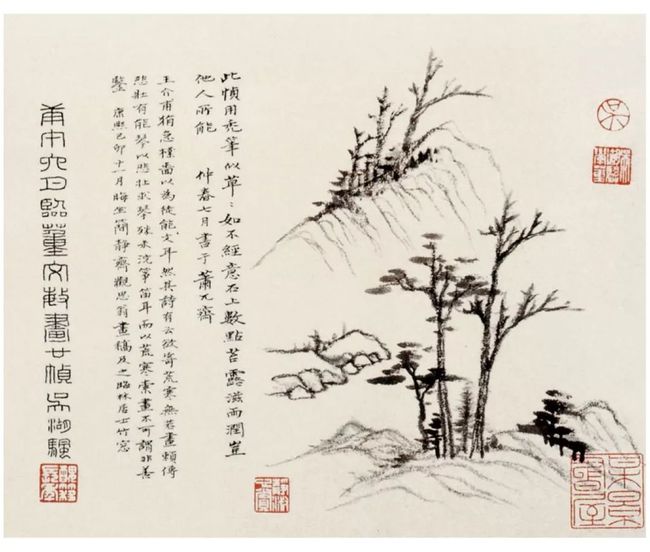 此幀用禿筆似草〻如不經意石上數點苔露滋而潤豈
他人所能　仲春七月書于蕭兀齋
王介甫狷急樸嗇以為徒能文耳然其詩有云欲寄荒寒無善畫賴傳
悲壯有能琴以悲壯求琴殊未浣箏笛耳而以荒寒索畫不可謂非善
鑒　康熙己卯十一月晦坐簡靜齋觀思翁畫稿及之　居士竹窗
申六月臨董文敏畫廿幀吳湖颿
吳